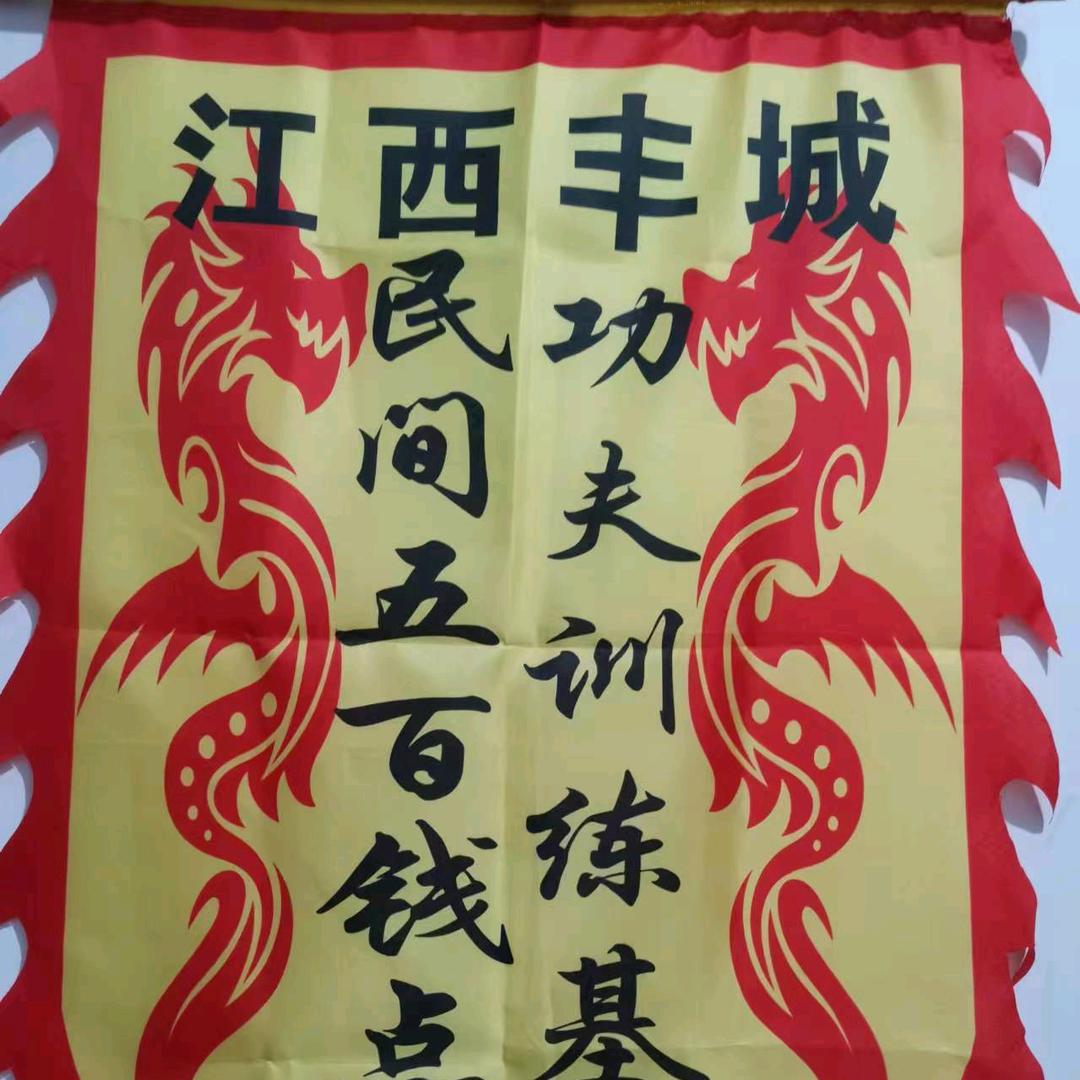 江西丰城
民间五百钱点
功夫训练基